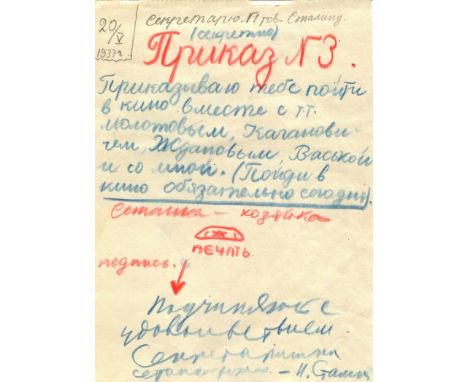 20/V
1937 г.
Секретарю №1 тов. Сталину.
(секретно)
Приказ N3.
Приказываю тебе пойти
в кино вместе с тт.
Молотовым, Каганови-
чем, Ждановым, Васькой
и со мной. (Пойди в
кино обязательно сегодня).
Сетанка – хозяйка
ПЕЧАТЬ
подпись.
Подчиняюсь с
удовольствием.
Секреташка
Сетанки-хозяйки – И. Сталин